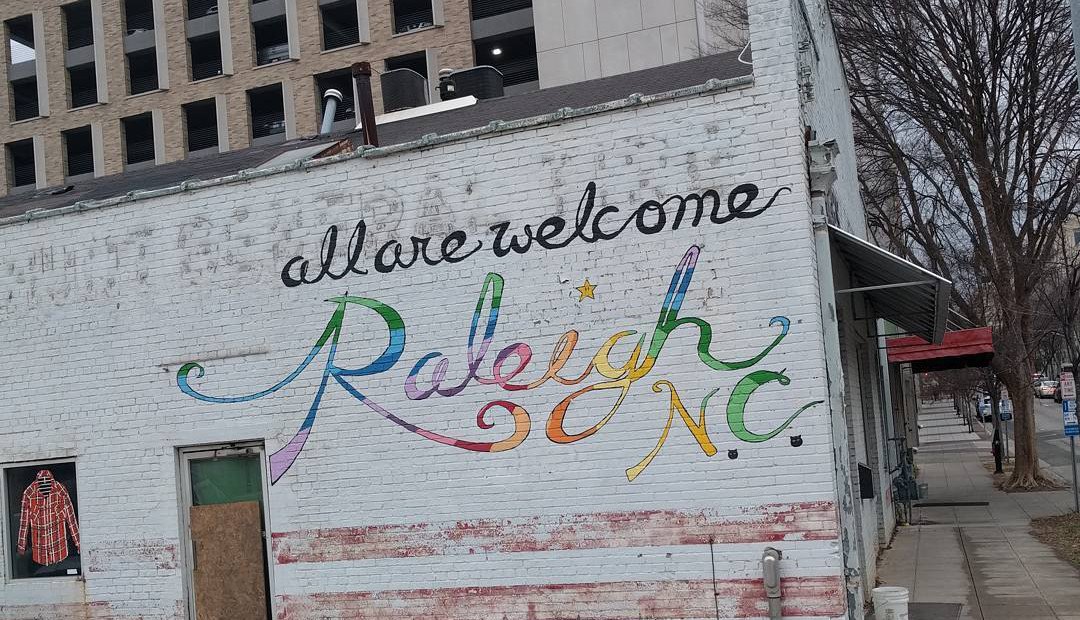 all are welcome
Raleigh
N.C.